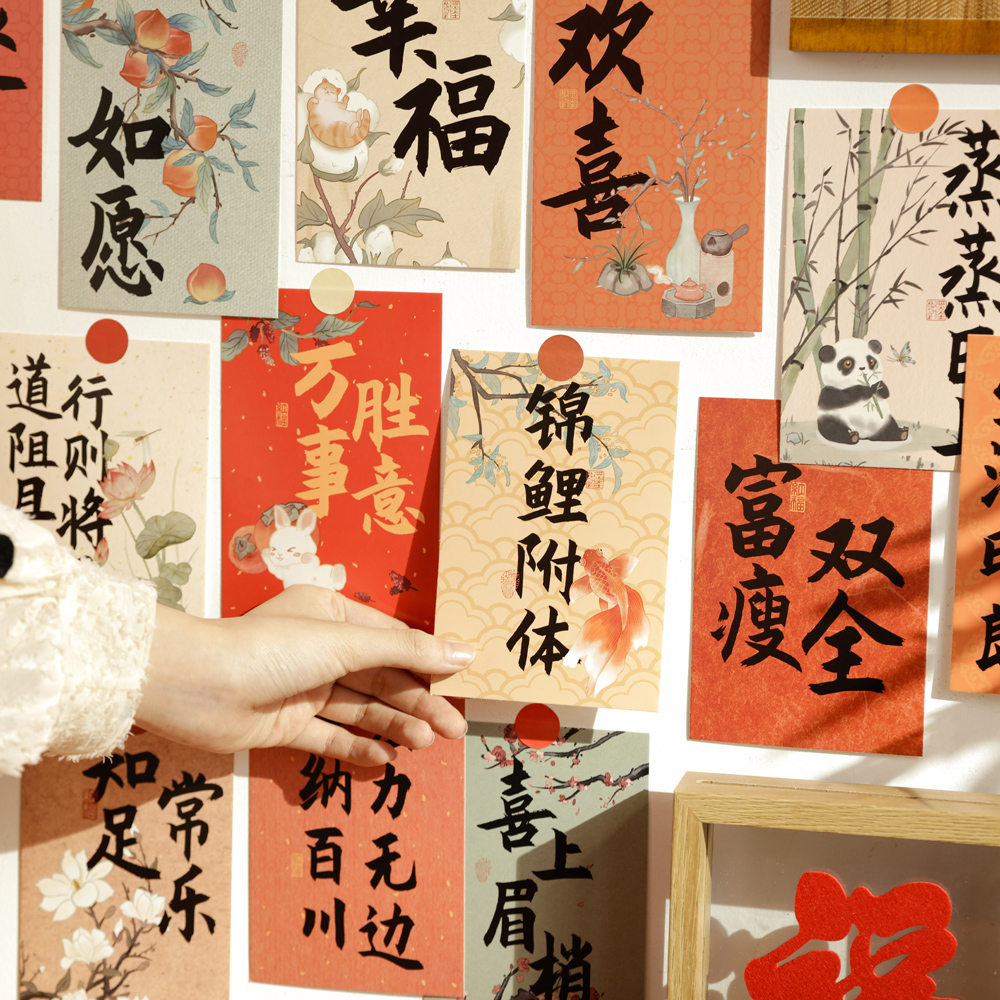 如愿
幸福
欢喜
蒸蒸日上
道阻且
行则将
万事
胜意
锦鲤附体
富瘦
双全
知足
常乐
纳百川
力无边
喜上眉梢